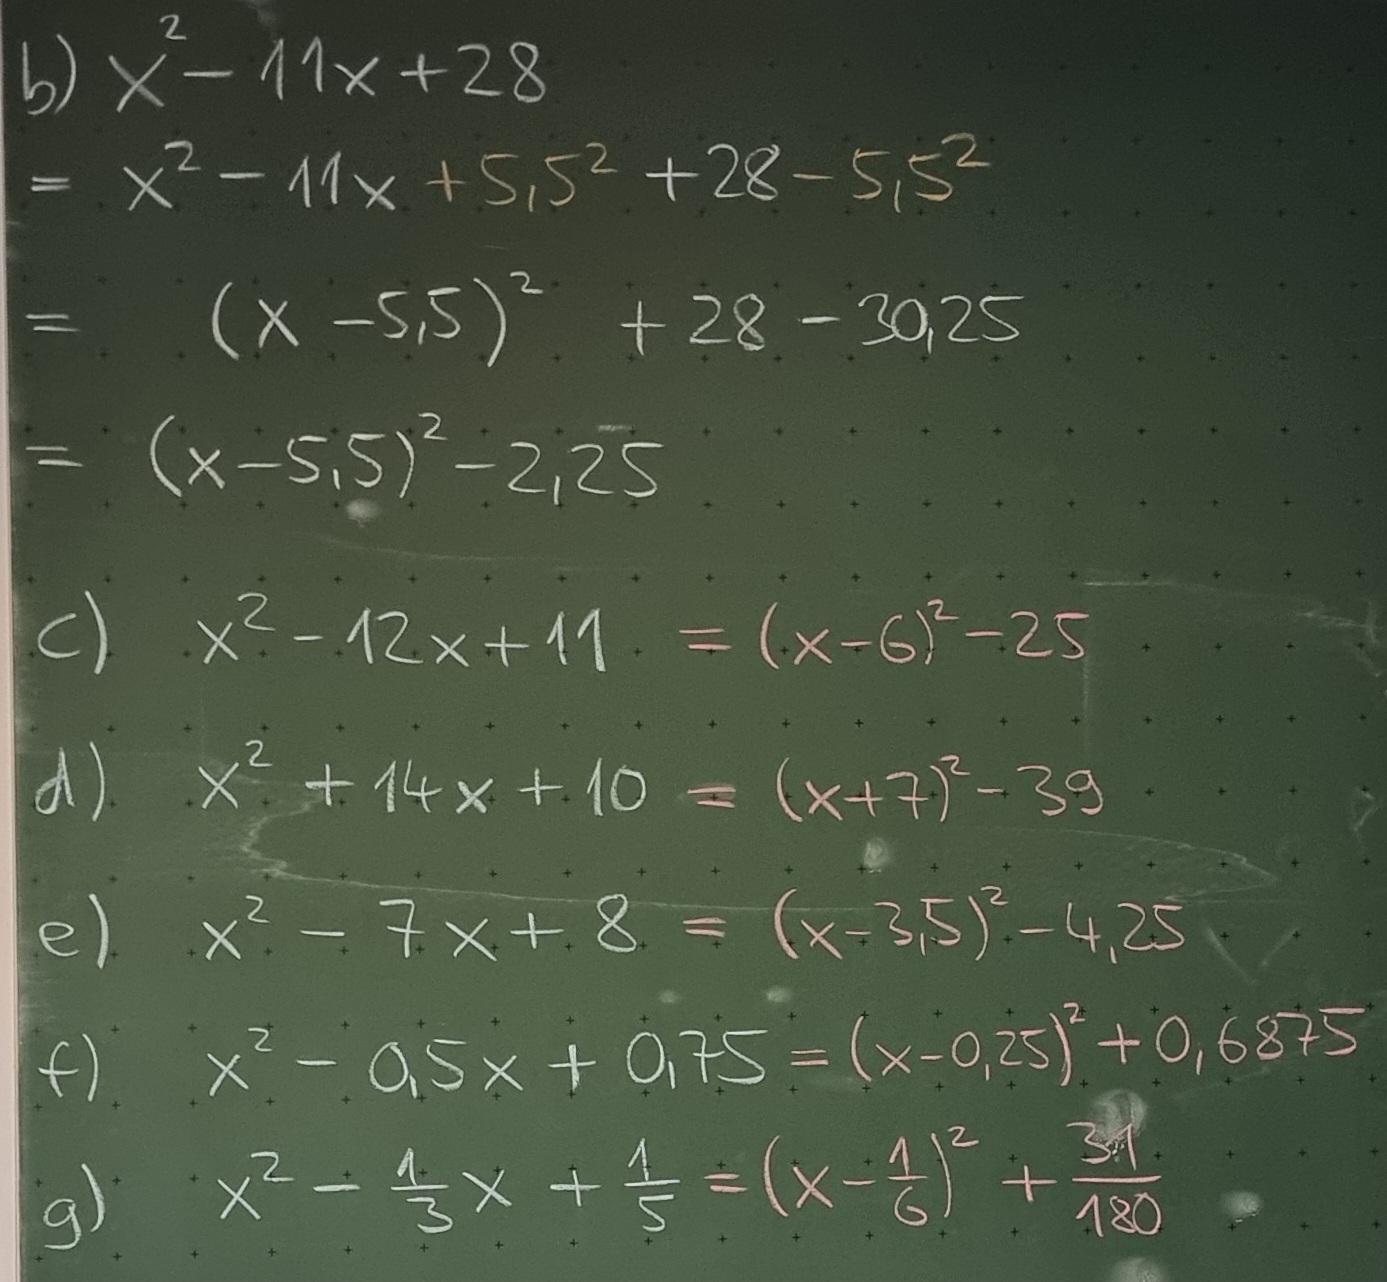 b) x² - 11x + 28
= x² - 11x + 5,5² + 28 - 5,5²
= (x - 5,5)² + 28 - 30,25
= (x - 5,5)² - 2,25
c) x² - 12x + 11 = (x - 6)² - 25
d) x² + 14x + 10 = (x + 7)² - 39
e) x² - 7x + 8 = (x - 3,5)² - 4,25
f) x² - 0,5x + 0,75 = (x - 0,25)² + 0,6875
g) x² - 1/3 x + 1/5 = (x - 1/6)² + 31/180